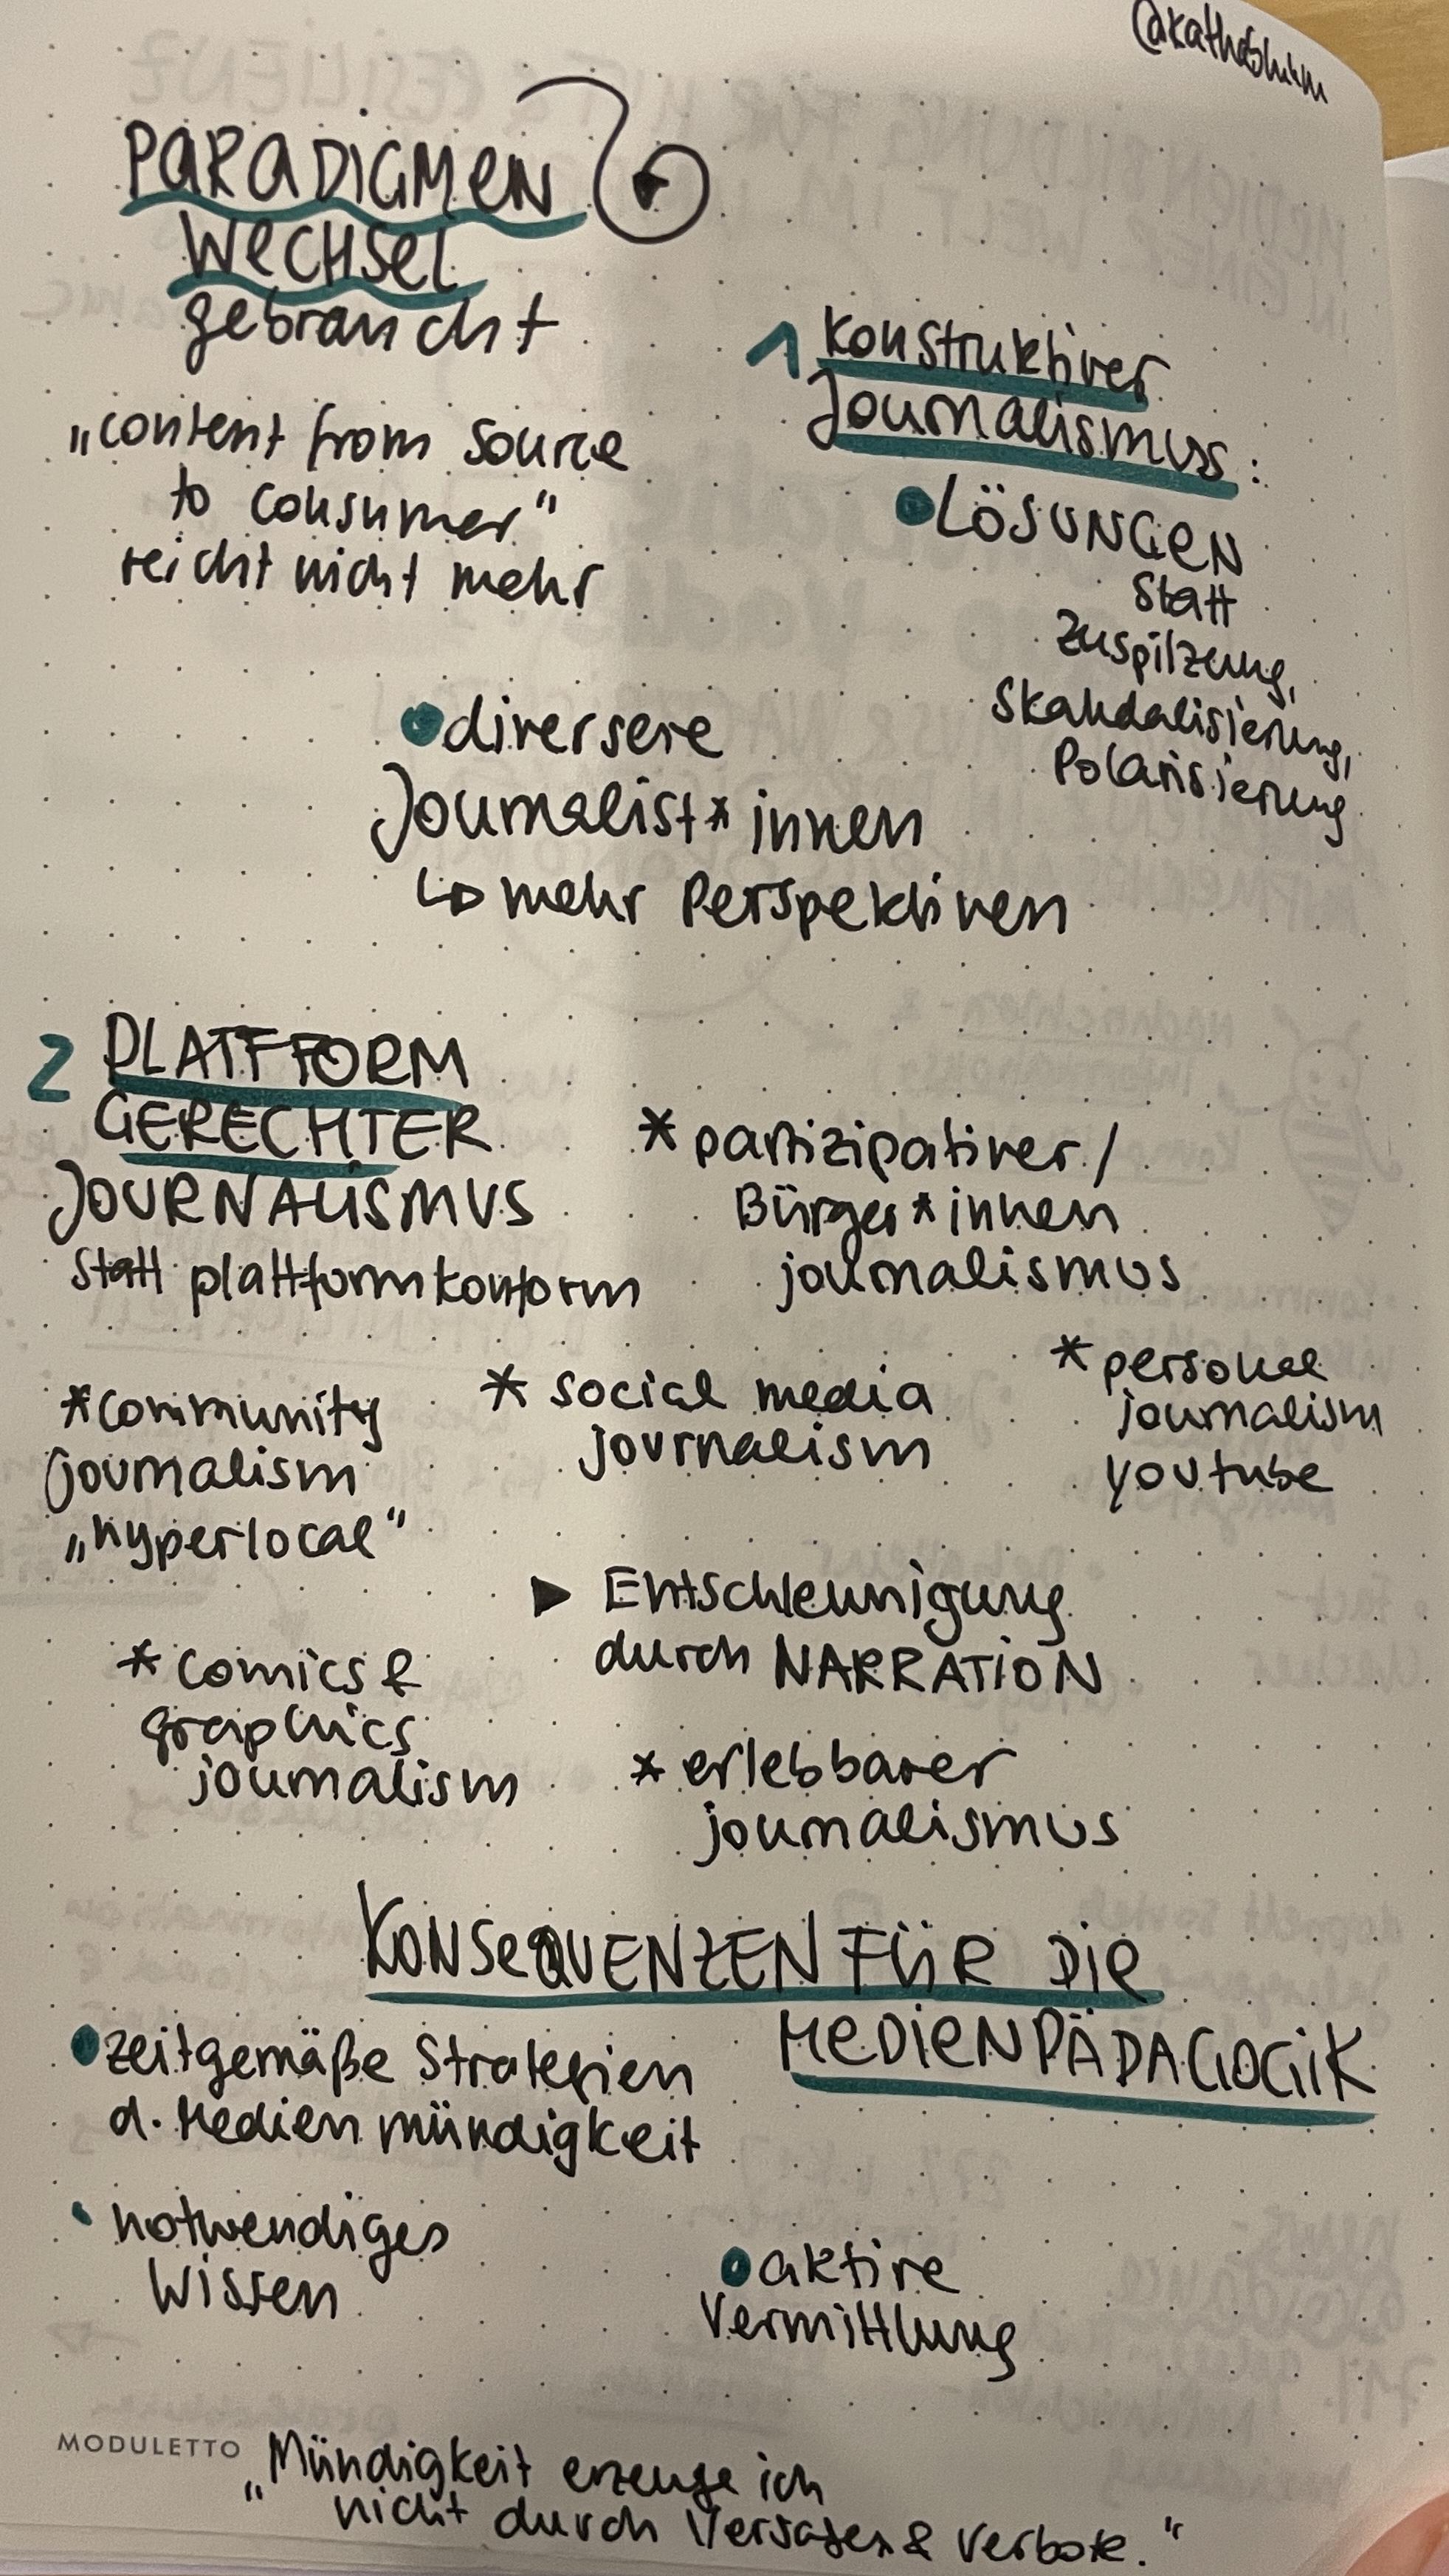 PARADIGMEN
WECHSEL
gebraucht
„content from source
to consumer"
reicht nicht mehr
1 Konstruktiver
Journalismus:
LÖSUNGEN
statt
Zuspitzung,
Skandalisierung,
Polarisierung
diversere
Journalist*innen
↳ mehr Perspektiven
2 PLATTFORM
GERECHTER
JOURNALISMUS
statt plattformkonform
* partizipativer/
Bürger*innen
journalismus
* community
journalism
„hyperlocal"
* social media
journalism
* personal
journalism
youtube
▶ Entschleunigung
durch NARRATION
* comics &
graphics
journalism
* erlebbarer
journalismus
KONSEQUENZEN FÜR DIE
MEDIENPÄDAGOGIK
zeitgemäße Strategien
d. Medienmündigkeit
• notwendiges
Wissen
aktive
Vermittlung
MODULETTO
„Mündigkeit erzeuge ich
nicht durch Versagen & Verbote."